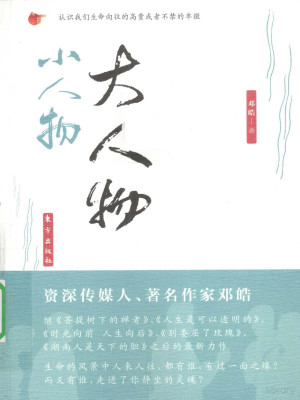 认识我们生命向往的高贵或者不禁的卑微
小人物
大人物
邓皓 著
东方出版社
资深传媒人、著名作家邓皓
继《菩提树下的禅者》、《人生是可以透明的》、
《时光向前 人生向后》、《别委屈了玫瑰》、
《湖南人是天下的胆》之后的最新力作
生命的风景中人来人往，都有谁，有过一面之缘？
而又有谁，走进了你静坐的灵魂？